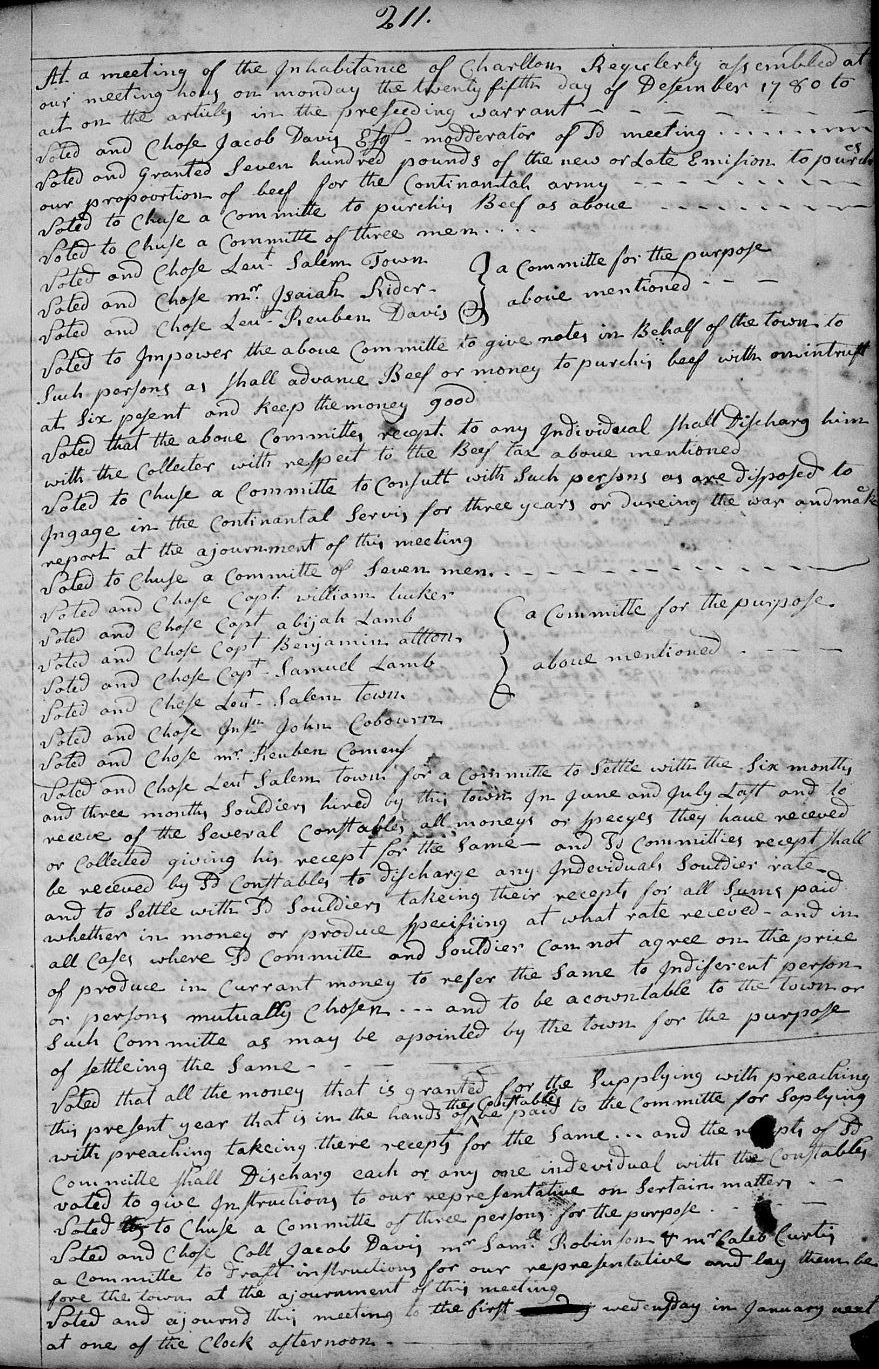 211.
At a meeting of the Inhabitance of Charlton Regulerly assembled at
our meeting hous on monday the twentyfifth day of Desember 1780 to
act on the articles in the preseeding warrant -
Voted and Chose Jacob Davis Esqr - modderator of Sd meeting
Voted and granted Seven hundred pounds of the new or Late Emision to purches
our propoortion of beef for the Continantal army
Voted to Chuse a Committe to purchis Beef as above
Voted to Chuse a Committe of three men
Voted and Chose Leut Salem Town
Voted and Chose mr. Isaiah Rider
Voted and Chose Leut Reuben Davis
a Committee for the purpose
above mentioned
Voted to Impower the above Committe to give notes in Behalf of the town to
Such persons as shall advance Beef or money to purchis beef with on intrust
at Six pesent and keep the money good
Voted that the above Committes recept to any Individual shall Discharg him
with the Collecter with respect to the Beef tax above mentioned
Voted to Chuse a Committe to Consult with Such persons as are disposed to
Ingage in the Continantal Servis for three years or dureing the war and make
report at the ajournment of this meeting
Voted to Chuse a Committe of Seven men
Voted and Chose Capt william tucker
Voted and Chose Capt abijah Lamb
Voted and Chose Capt Benjamin alton
Voted and Chose Capt Samuel Lamb
Voted and Chose Leut Salem town
Voted and Chose Insn John Cobourn
Voted and Chose mr Reuben Comens
a Committe for the purpose
above mentioned
Voted and Chose Leut Salem town for a Committe to Settle with the Six months
and three months Souldiers hired by this town In June and July Last and to
receve of the Several Constables all moneys or specyes they have receved
or Collected giving his recept for the Same - and Sd Committies recept shall
be receved by Sd Constables to discharge any Individuals Souldier rate
and to Settle with Sd Souldiers takeing their recepts for all Sums paid
whether in money or produce specifiing at what rate receved - and in
all Cases where Sd Committe and Souldier Can not agree on the price
of produce in Currant money to refer the Same to Indiferent person
or persons mutually Chosen --- and to be acowntable to the town or
Such Committe as may be apointed by the town for the purpose
of settleing the Same
Voted that all the money that is granted for the Supplying with preaching
this present year that is in the hands of the Constables be paid to the Committe for Soplying
with preaching takeing there recepts for the Same ... and the recepts of Sd
Committe shall Discharg each or any one indevidual with the Constables
voted to give Instructions to our representative on Sertain matters
Voted to Chuse a Committe of three persons for the purpose
Voted and Chose Coll Jacob Davis mr Samll Robinson & mr Caleb Curtis
a Committe to Draft instructions for our representative and lay them be
fore the town at the ajournment of this meeting
Voted and ajournd this meeting to the first wedensday in January next
at one of the Clock afternoon -